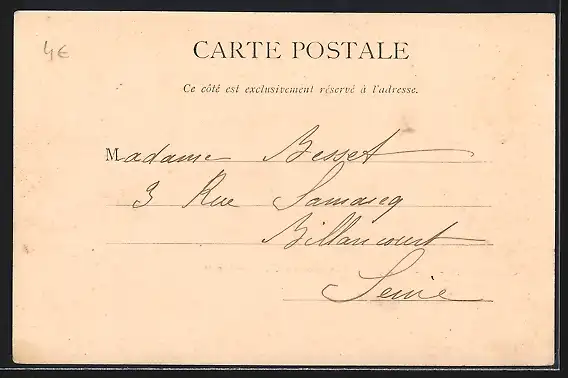 4€
CARTE POSTALE
Ce côté est exclusivement réservé à l'adresse.
Madame Besset
3 Rue
Billancourt
Seine